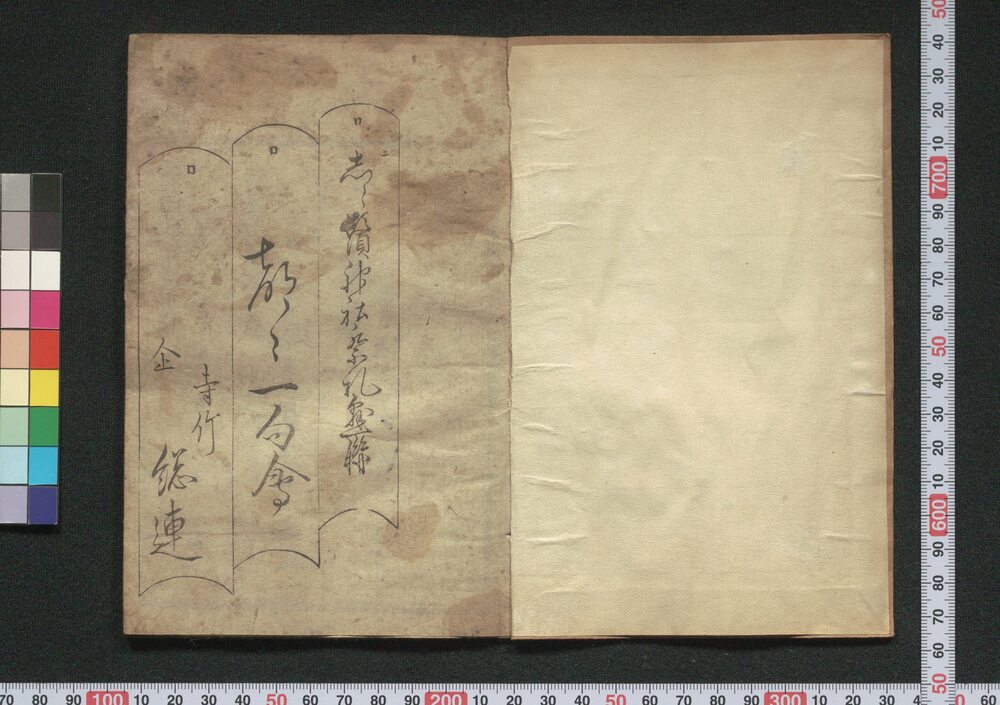 志々贊神社祭礼盡聯
都々一句會
寺竹
企
総連
70 80 90 100 10 20 30 40 50 60 70 80 90 200 10 20 30 40 50 60 70 80 90 300 10 20 30 4 0 60
50 40 30 20 10 700 90 80 70 60 50 40 30 20 10 600 90 80 70 60 50